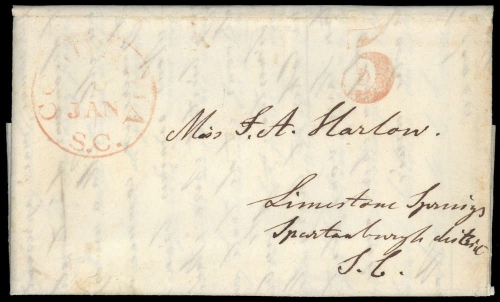 COLUMBIA
JAN
S.C.
5
Miss F. A. Harlow.
Limestone Springs
Spartanburgh district
S. C.